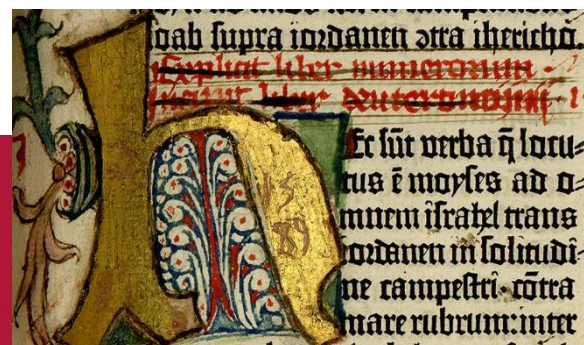 oab supra iordanen ɔtra ihericho.
Explicit liber numerorum
Incipit liber deuteronomii
H
15
89
Ec sūt verba q̄ locu-
tus ē moyses ad o-
mnem israhel trans
iordanen in solitudi-
ne campestri · cōtra
mare rubrum: inter